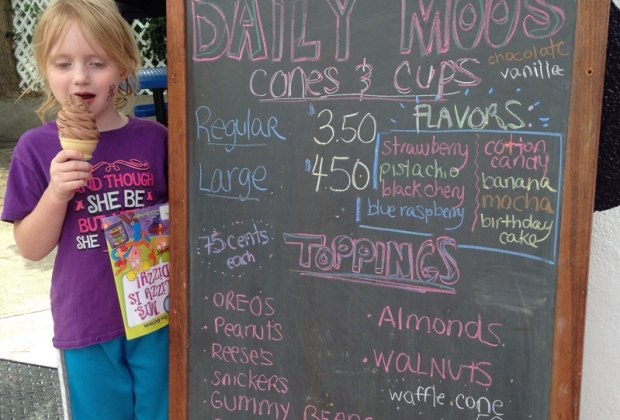 DAILY MOOS
chocolate
vanilla
CONES & CUPS
FLAVORS:
Regular $3.50
Large $4.50
strawberry
pistachio
black chery
blue raspberry
cotton
candy
banana
mocha
birthday
cake
75 cents
each
TOPPINGS
OREOS
Peanuts
Reese's
Snickers
GUMMY BEARS
Almonds
WALNUTS
waffle cone
AND THOUGH
SHE BE
BUT
SHE